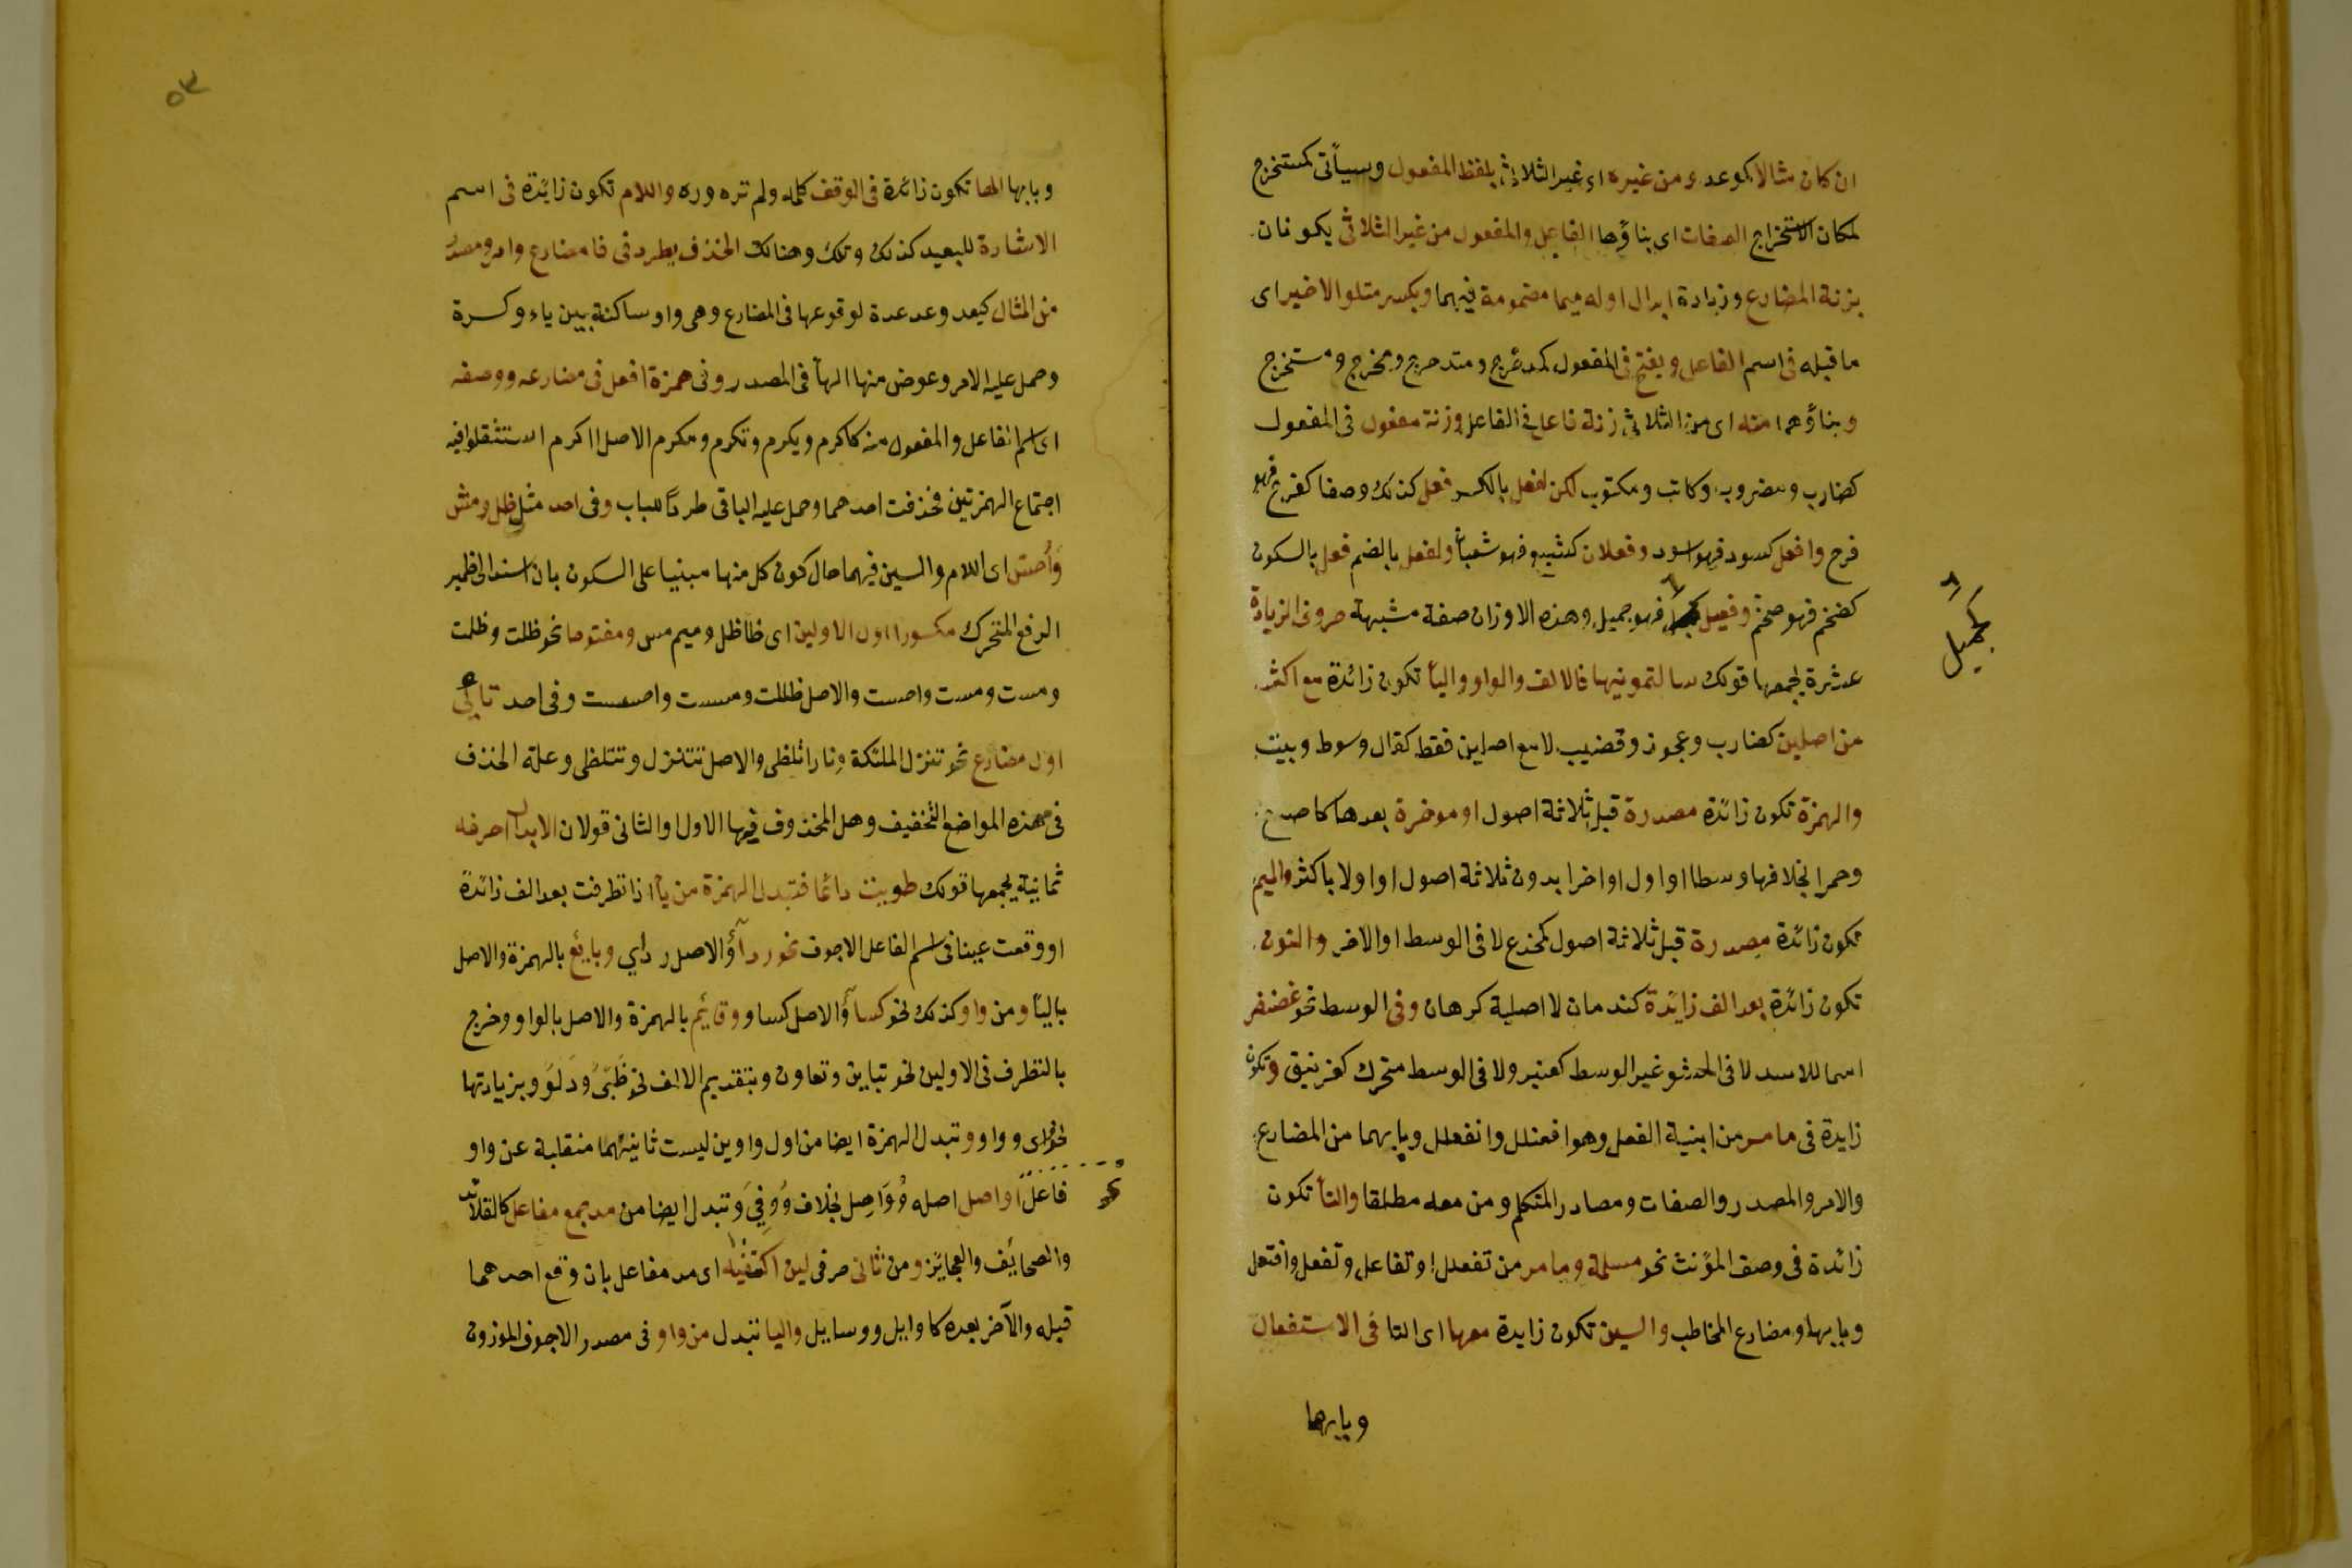 ان كان مثالا كموعد ومن غيره اى غير الثلاثى بلفظ المفعول وسيأتى كمستخرج
لمكان الاستخراج الصفات اى بناؤها الفاعل والمفعول من غير الثلاثى يكونان
بزنة المضارع وزيادة ابدال اوله ميما مضمومة فيهما وبكسر متلو الاخير اى
ما قبله فى اسم الفاعل ويفتح فى المفعول كمدحرج ومتدحرج ومخرج ومستخرج
وبناؤهما منه اى من الثلاثى زنة فاعل فى الفاعل وزنة مفعول فى المفعول
كضارب ومضروب وكاتب ومكتوب لكن لفعل بالكسر فعل كذلك وصفا كفرح فهو
فرح وافعل كسود فهو اسود وفعلان كشبع فهو شبعان ولفعل بالضم فعل بالسكون
كضخم فهو ضخم وفعيل فهو جميل وهذه الاوزان صفة مشبهة حروف الزيادة
كجميل
عشرة يجمعها قولك سالتمونيها فالالف والواو واليأ تكون زائدة مع اكثر
من اصلين كضارب وعجوز وقضيب لا مع اصلين فقط كقال وسوط وبيت
والهمزة تكون زائدة مصدرة قبل ثلاثة اصول او موخرة بعدها كاصبع
وحمرا بخلافها وسطا او اول او اخرا بدون ثلاثة اصول او اولا باكثر والميم
تكون زائدة مصدرة قبل ثلاثة اصول كمخدع لا فى الوسط او الاخر والنون
تكون زائدة بعد الف زايدة كندمان لا اصلية كرهان وفى الوسط نحو غضنفر
اسما للاسد لا فى الحشو غير الوسط كعنبر ولا فى الوسط متحرك كغرنيق وتكون
زايدة فى ما مر من ابنية الفعل وهو افعنلل وانفعل وبابهما من المضارع
والامر والمصدر والصفات ومصادر المتكلم ومن معه مطلقا والتأ تكون
زائدة فى وصف المؤنث نحو مسلمة وما مر من تفعلل وتفاعل وتفعل وافتعل
وبابها ومضارع المخاطب والسين تكون زايدة معها اى التا فى الاستفعال
وبابها
٥٣
وبابها الها تكون زائدة فى الوقف كلمه ولم تره وره واللام تكون زائدة فى اسم
الاشارة للبعيد كذلك وتلك وهنالك الحذف يطرد فى فا مضارع وامر ومصدر
من المثال كيعد وعد عدة لوقوعها فى المضارع وهى واو ساكنة بين ياء وكسرة
وحمل عليه الامر وعوض منها الهأ فى المصدر وفى همزة افعل فى مضارعه ووصفه
اى اسم الفاعل والمفعول منه كاكرم ويكرم وتكرم ومكرم الاصل ااكرم استثقلوا فيه
اجتماع الهمزتين فحذفت احدهما وحمل عليه الباقى طردا للباب وفى احد مثل ظل ومس
وأحس اى اللام والسين فيهما حال كون كل منها مبنيا على السكون بان اسند الى ظمير
الرفع المتحرك مكسورا اول الاولين اى ظا ظل وميم مس ومفتوحا نحو ظلت وظلت
ومست ومست واحست والاصل ظللت ومسست واحسست وفى احد تائى
اول مضارع نحو تنزل الملئكة ونارا تلظى والاصل تتنزل وتتلظى وعلة الحذف
فى هذه المواضع التخفيف وهل المحذوف فيها الاول او الثانى قولان الابدال احرفه
ثمانية يجمعها قولك طويت دائما فتبدل الهمزة من يأ اذا تطرفت بعد الف زائدة
او وقعت عينا فى اسم الفاعل الاجوف نحو ردآؤ الاصل رداي وبايع بالهمزة والاصل
باليأ ومن واو كذلك نحو كسآؤ الاصل كساو وقايم بالهمزة والاصل بالواو وخرج
بالتطرف فى الاولين نحو تباين وتعاون وبتقديم الالف نحو ظبى ودلو وبزيادتها
نحو اى وواو وتبدل الهمزة ايضا من اول واوين ليست ثانيتهما منقلبة عن واو
فاعل اواصل اصله وُوَاصِل بخلاف وُوفِيَ وتبدل ايضا من مد جمع مفاعل كالقلائد
والصحايف والعجايز ومن ثانى حرفى لين اكتنفاه اى مد مفاعل بان وقع احدهما
قبله والآخر بعده كاوايل ووسايل واليا تبدل من واو فى مصدر الاجوف الموزون